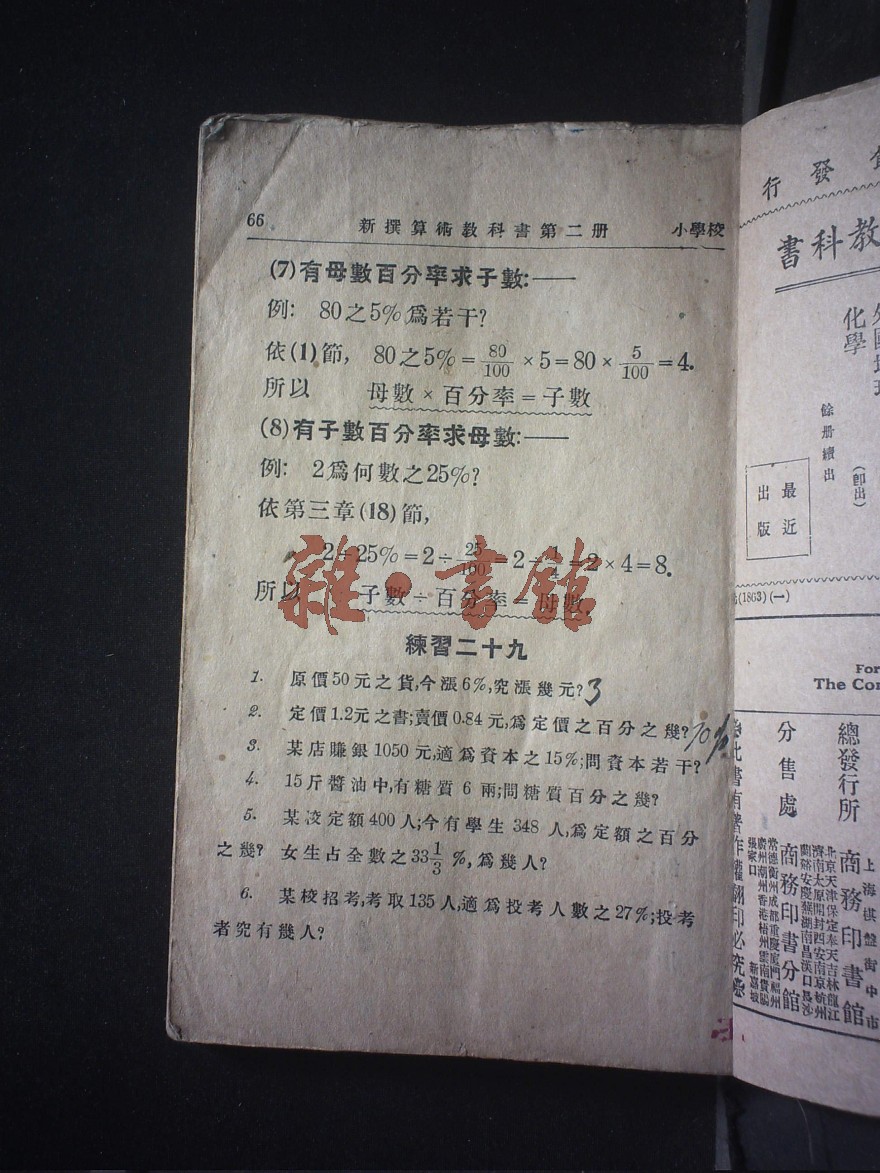 66 新撰算術教科書第二册 小學校
(7)有母數百分率求子數:——
例: 80之5%爲若干?
依(1)節, 80之5% = 80/100 × 5 = 80 × 5/100 = 4.
所以 母數 × 百分率 = 子數
(8)有子數百分率求母數:——
例: 2爲何數之25%?
依第三章(18)節,
2 ÷ 25% = 2 ÷ 25/100 = 2 ÷ 1/4 = 2 × 4 = 8.
所以 子數 ÷ 百分率 = 母數.
雜·書館
練習二十九
1. 原價50元之貨,今漲6%,究漲幾元? 3
2. 定價1.2元之書;賣價0.84元,爲定價之百分之幾? 70%
3. 某店賺銀1050元,適爲資本之15%;問資本若干?
4. 15斤醬油中,有糖質6兩;問糖質百分之幾?
5. 某校定額400人;今有學生348人,爲定額之百分
之幾? 女生占全數之33 1/3 %,爲幾人?
6. 某校招考,考取135人,適爲投考人數之27%;投考
者究有幾人?
發行
教科書
化學
餘册續出
(卽出)
最近
出版
(1863)(一)
For
The Co
總發行所
上海棋盤街中市
商務印書館
分售處
商務印書分館
此書有著作權翻印必究